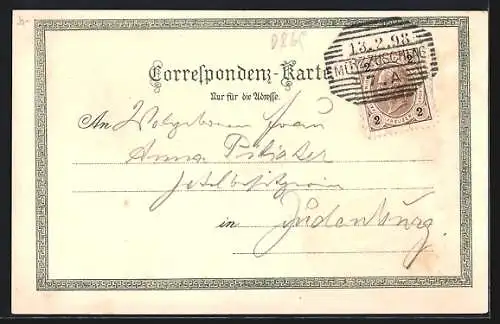 D865
13.2.98
MÜRZZUSCHLAG
7.A
2 2
KREUZER
Correspondenz-Karte
Nur für die Adresse.
An Wolgeboren Frau
Anna
Hotelbesitzerin
in Judenburg